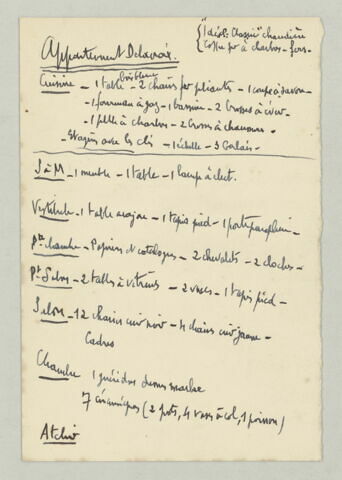 Appartement Delacroix.
{ "Idéal Classic" chaudière
Coffre à charbon - fers -
Cuisine - 1 table - 2 chaises pliantes - 1 coupe à savon -
- 1 fourneau à gaz - 1 bassine - 2 brosses à évier -
- 1 pelle à charbon - 2 brosses à chaussures -
Etagère avec les clés - 1 échelle - 3 balais -
S à M - 1 meuble - 1 table - 1 lampe à élect.
Vestibule - 1 table acajou - 1 tapis pied - 1 porteparapluie -
Pte chambre - Papiers et catalogues - 2 chevalets - 2 cloches -
Pt Salon - 2 tables à vitrines - 2 vases - 1 tapis pied -
Salon - 12 chaises cuir noir - 4 chaises cuir jaune -
Cadres
Chambre 1 guéridon dessus marbre
7 céramiques (2 pots, 4 vases à col, 1 poisson)
Atelier